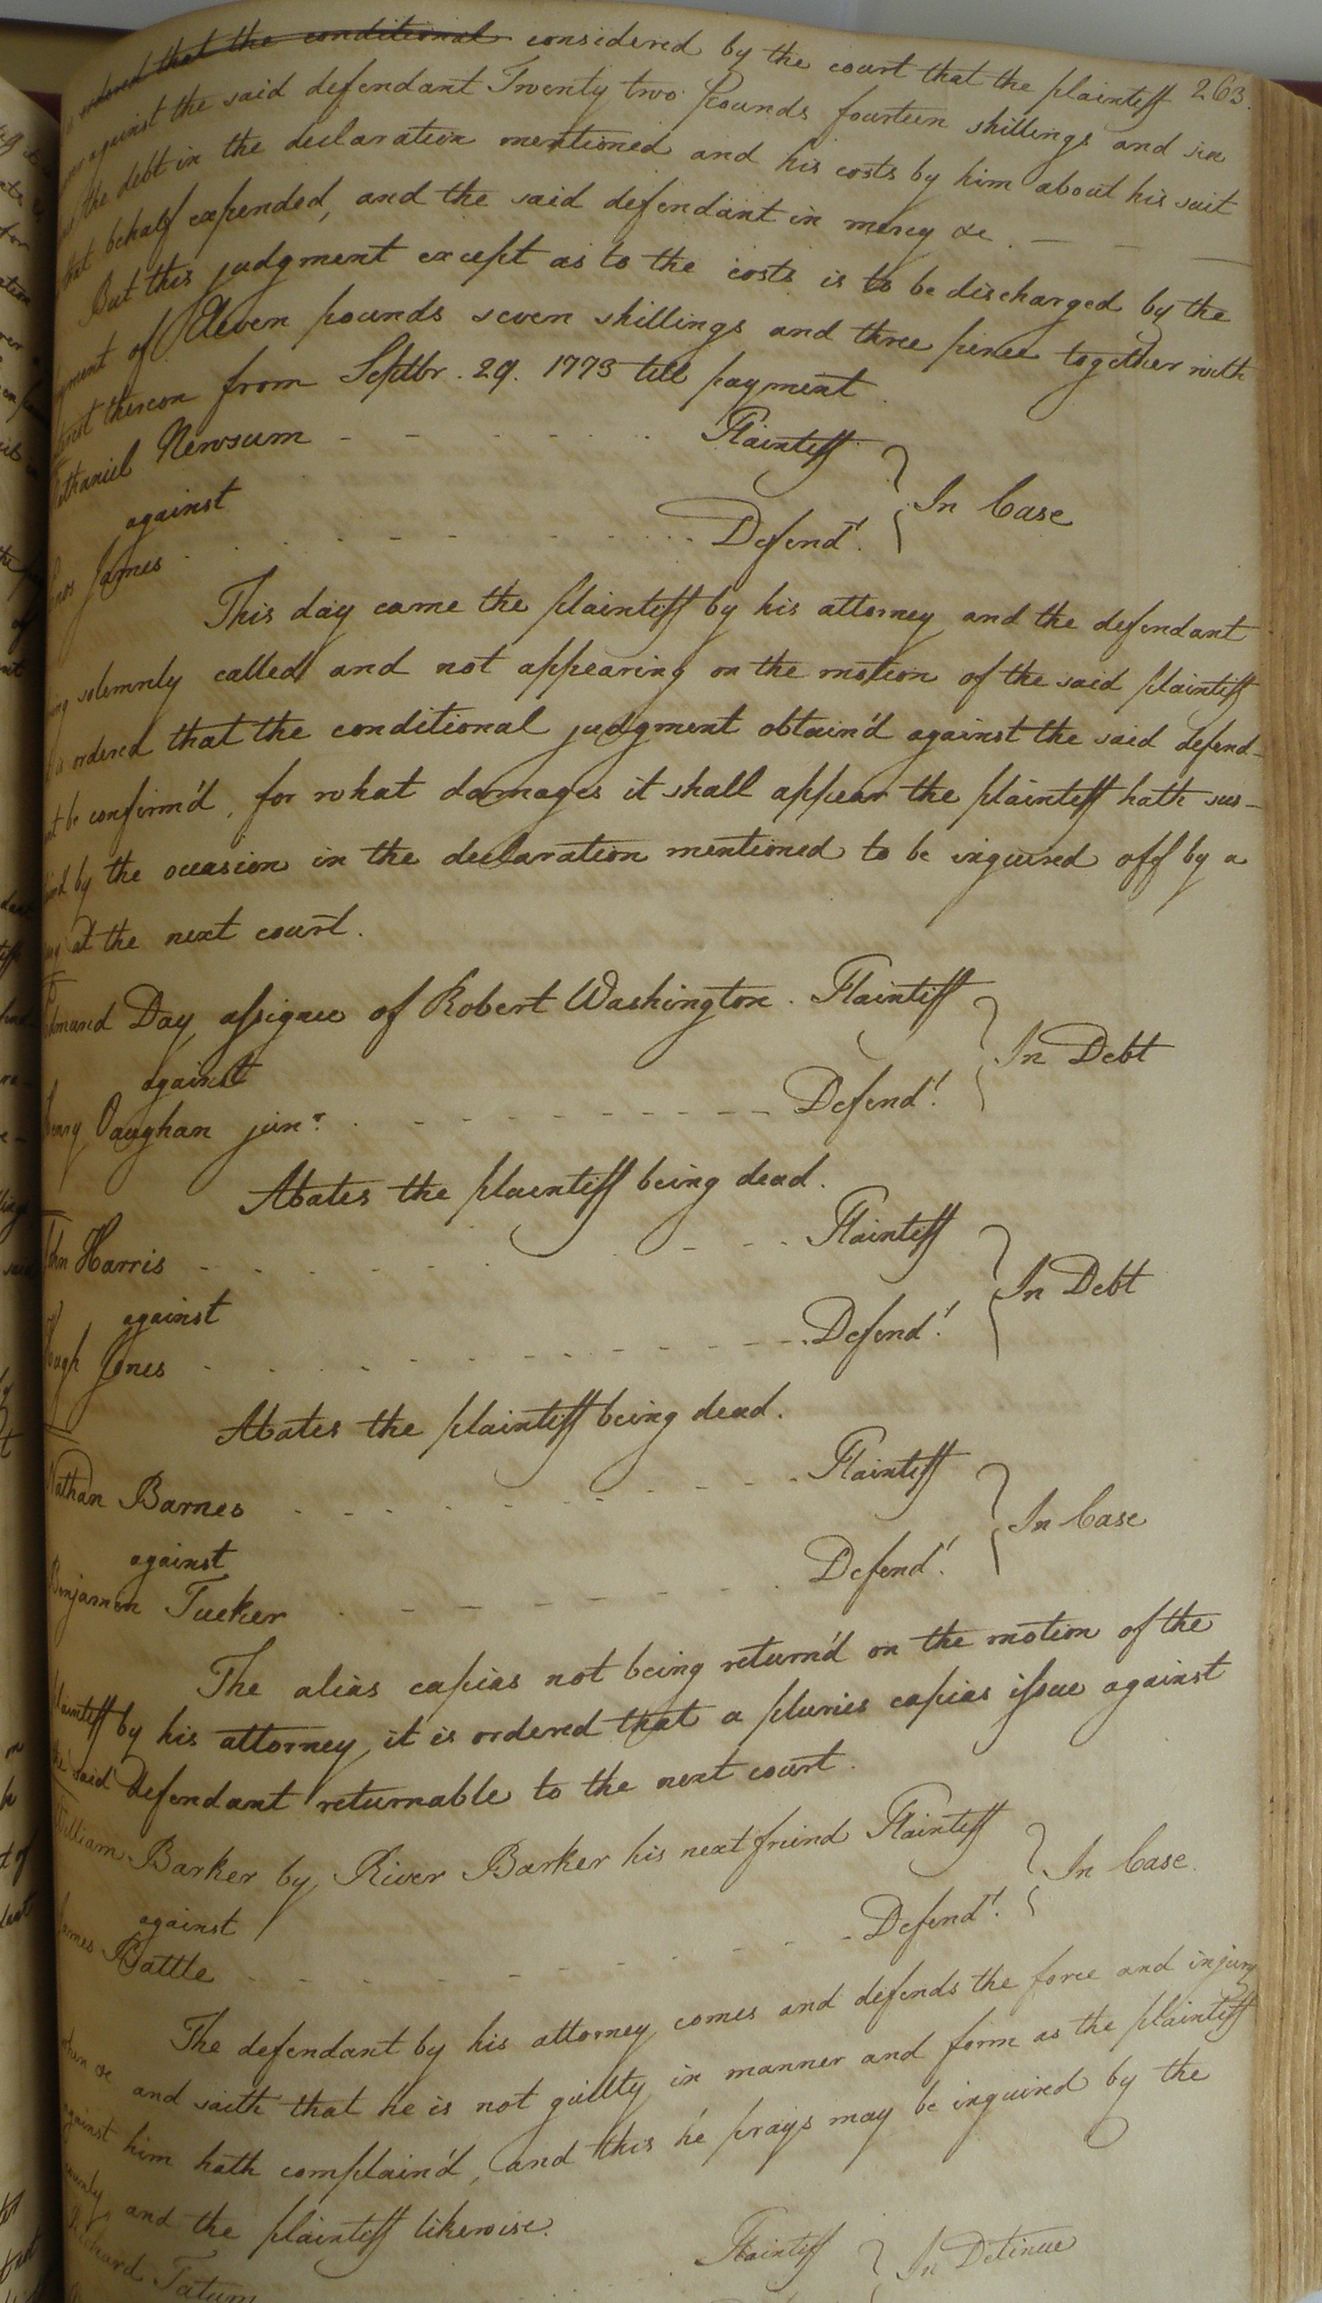 ordered that the conditional considered by the court that the plaintiff 263.
against the said defendant Twenty two Pounds fourteen shillings and six
the debt in the declaration mentioned and his costs by him about his suit
that behalf expended, and the said defendant in mercy &c. — — —
But this judgment except as to the costs is to be discharged by the
of Eleven pounds seven shillings and three pence together with
thereon from Septbr. 29. 1773 till payment.
Nathaniel Newsum - - - - - - - Plaintiff
against In Case
James - - - - - - - Defend.t
This day came the plaintiff by his attorney and the defendant
solemnly called and not appearing on the motion of the said plaintiff
is ordered that the conditional judgment obtain'd against the said defend-
be confirm'd, for what damages it shall appear the plaintiff hath sus-
by the occasion in the declaration mentioned to be inquired off by a
at the next court.
Edmund Day assignee of Robert Washington. Plaintiff
against In Debt
Henry Vaughan jun.r - - - - - - - Defend.t
Abates the plaintiff being dead.
John Harris - - - - - - - Plaintiff
against In Debt
Hough Jones - - - - - - - Defend.t
Abates the plaintiff being dead.
Nathan Barnes - - - - - - - Plaintiff
against In Case
Benjamin Tucker - - - - - - - Defend.t
The alias capias not being return'd on the motion of the
plaintiff by his attorney, it is ordered that a pluries capias issue against
the said defendant returnable to the next court.
William Barker by River Barker his next friend Plaintiff
against In Case.
James Battle - - - - - - - Defend.t
The defendant by his attorney comes and defends the force and injury
when &c and saith that he is not guilty in manner and form as the plaintiff
against him hath complain'd, and this he prays may be inquired by the
county, and the plaintiff likewise.
Richard Tatum Plaintiff In Detinue